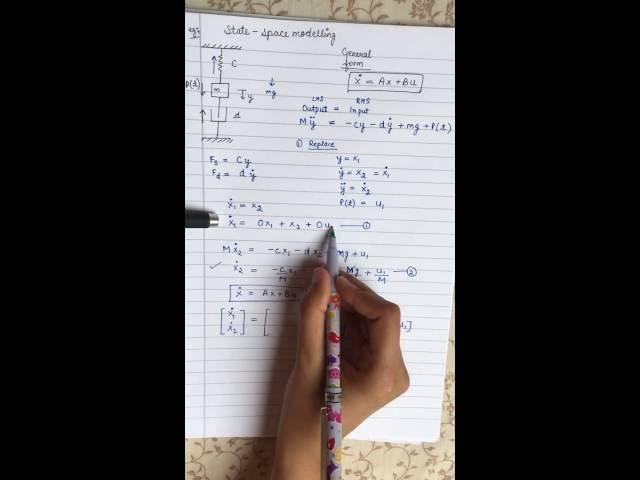 eg:- State - space modelling
General
form
Ẋ = Ax + Bu
C
P(t)
m
↓y
↓
mg
d
LHS RHS
Output = Input
Mÿ = -cy - dẏ + mg + P(t)
① Replace
Fs = Cy
Fd = dẏ
y = x₁
ẏ = x₂ = ẋ₁
ÿ = ẋ₂
P(t) = u₁
ẋ₁ = x₂
ẋ₁ = 0x₁ + x₂ + 0u —①
Mẋ₂ = -cx₁ - dx₂ mg + u₁
✓ ẋ₂ = -c/M x₁ - g + u₁/M —②
Ẋ = Ax + Bu
[ẋ₁ ẋ₂] = [ ]